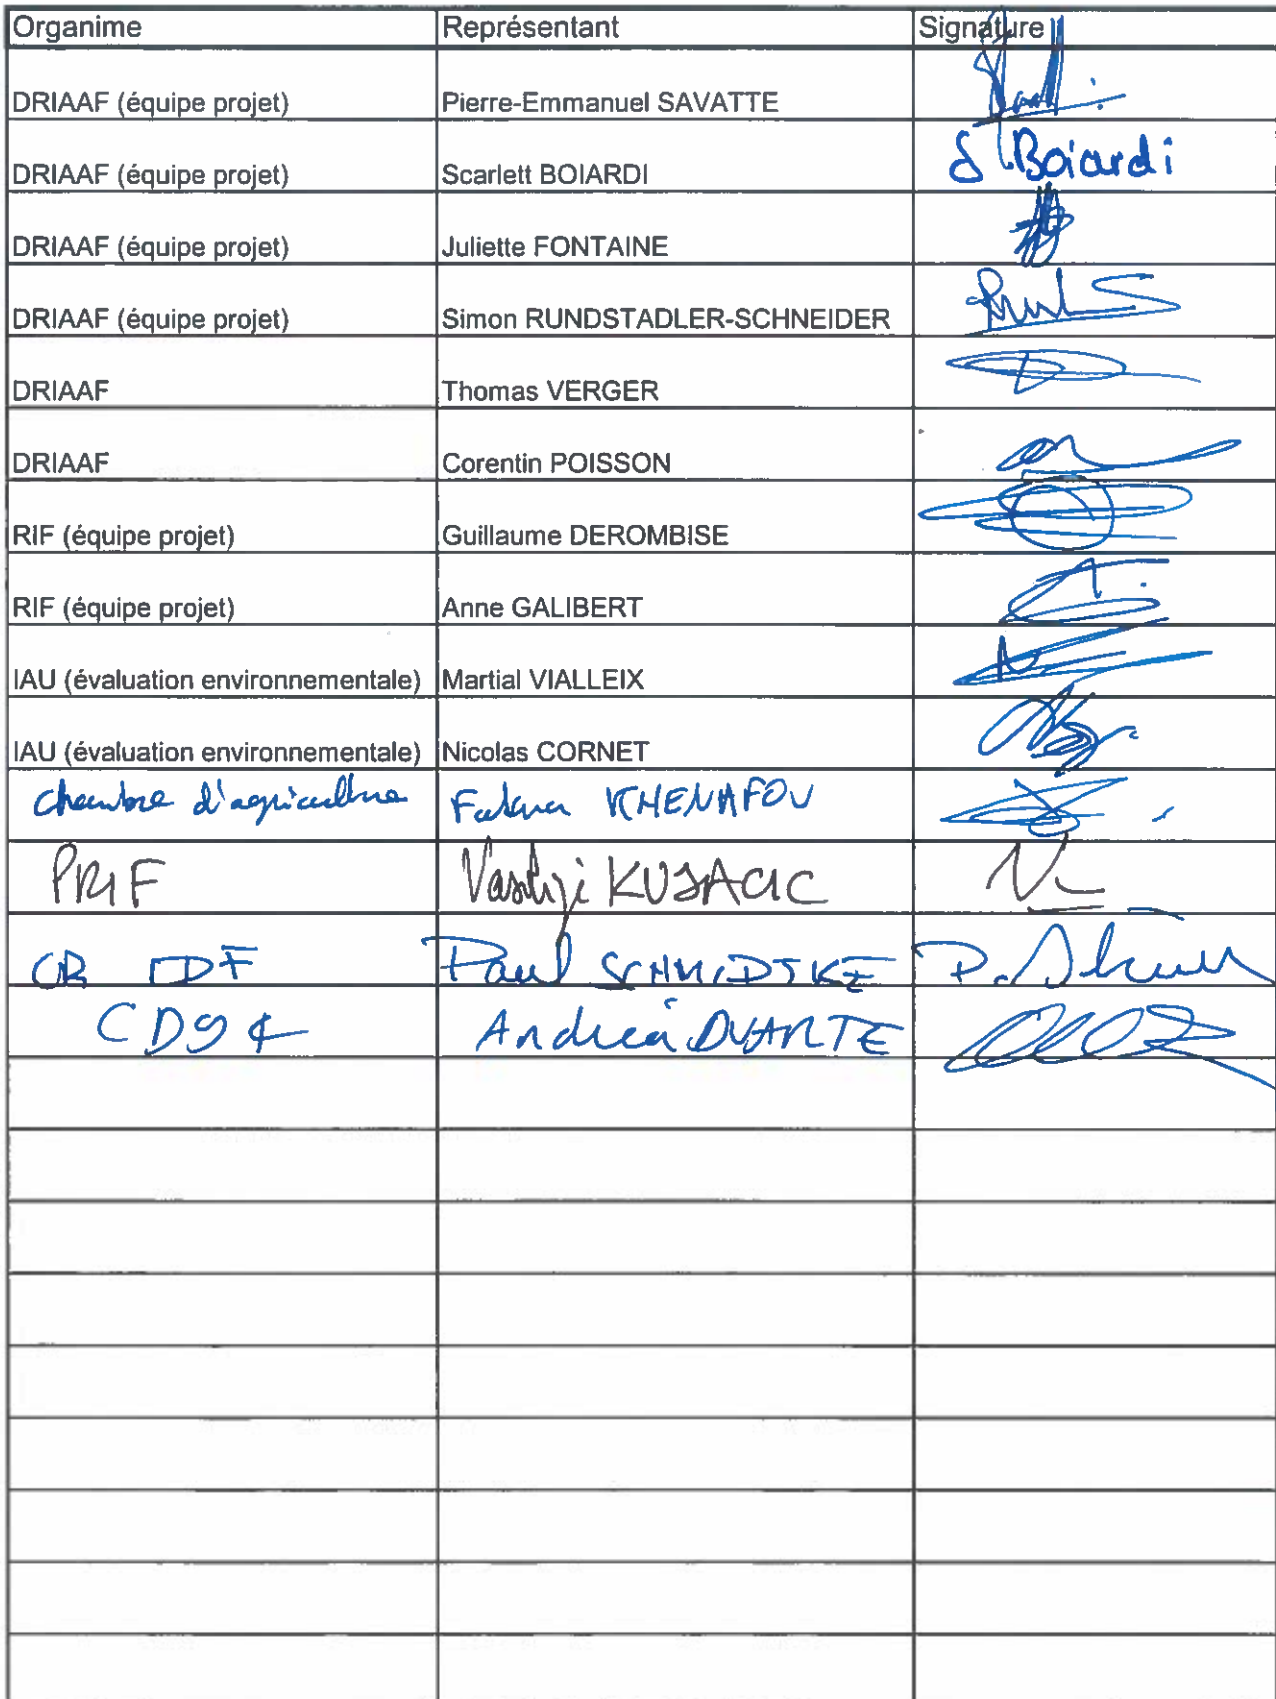 Organime Représentant Signature
DRIAAF (équipe projet) Pierre-Emmanuel SAVATTE
DRIAAF (équipe projet) Scarlett BOIARDI S Boiardi
DRIAAF (équipe projet) Juliette FONTAINE
DRIAAF (équipe projet) Simon RUNDSTADLER-SCHNEIDER
DRIAAF Thomas VERGER
DRIAAF Corentin POISSON
RIF (équipe projet) Guillaume DEROMBISE
RIF (équipe projet) Anne GALIBERT
IAU (évaluation environnementale) Martial VIALLEIX
IAU (évaluation environnementale) Nicolas CORNET
Chambre d'agriculture Fatma KHENAFOU
PRIF KUJACIC
IDF Paul SCHMIDTKE
CD94 Andrea DUARTE